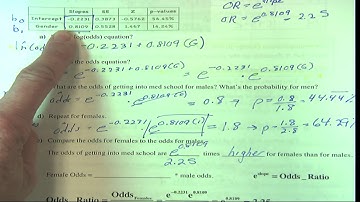 OR = e
Slopes SE Z p-values
b₀ Intercept -0.2231 0.3873 -0.5762 56.45%
b₁ Gender 0.8109 0.5528 1.467 14.24%
OR = e^0.8109 = 2.25
log(odds) equation?
-0.2231 + 0.8109 (G)
odds equation?
e^-0.2231 · e^0.8109(G)
odds of getting into med school? What's the probability for men?
odds = e^-0.2231 = 0.8 → p = 0.8/1.8 = 44.44%
d) Repeat for females.
odds = e^-0.2231 e^0.8109(1) = 1.8 → p = 1.8/2.8 = 64.29%
e) Compare the odds for females to the odds for males.
e^0.8109
The odds of getting into med school are 2.25 times higher for females than for males.
Female Odds = * male odds. e^slope = Odds_Ratio
Odds_Ratio = Odds Females = e^-0.2231 e^0.8109